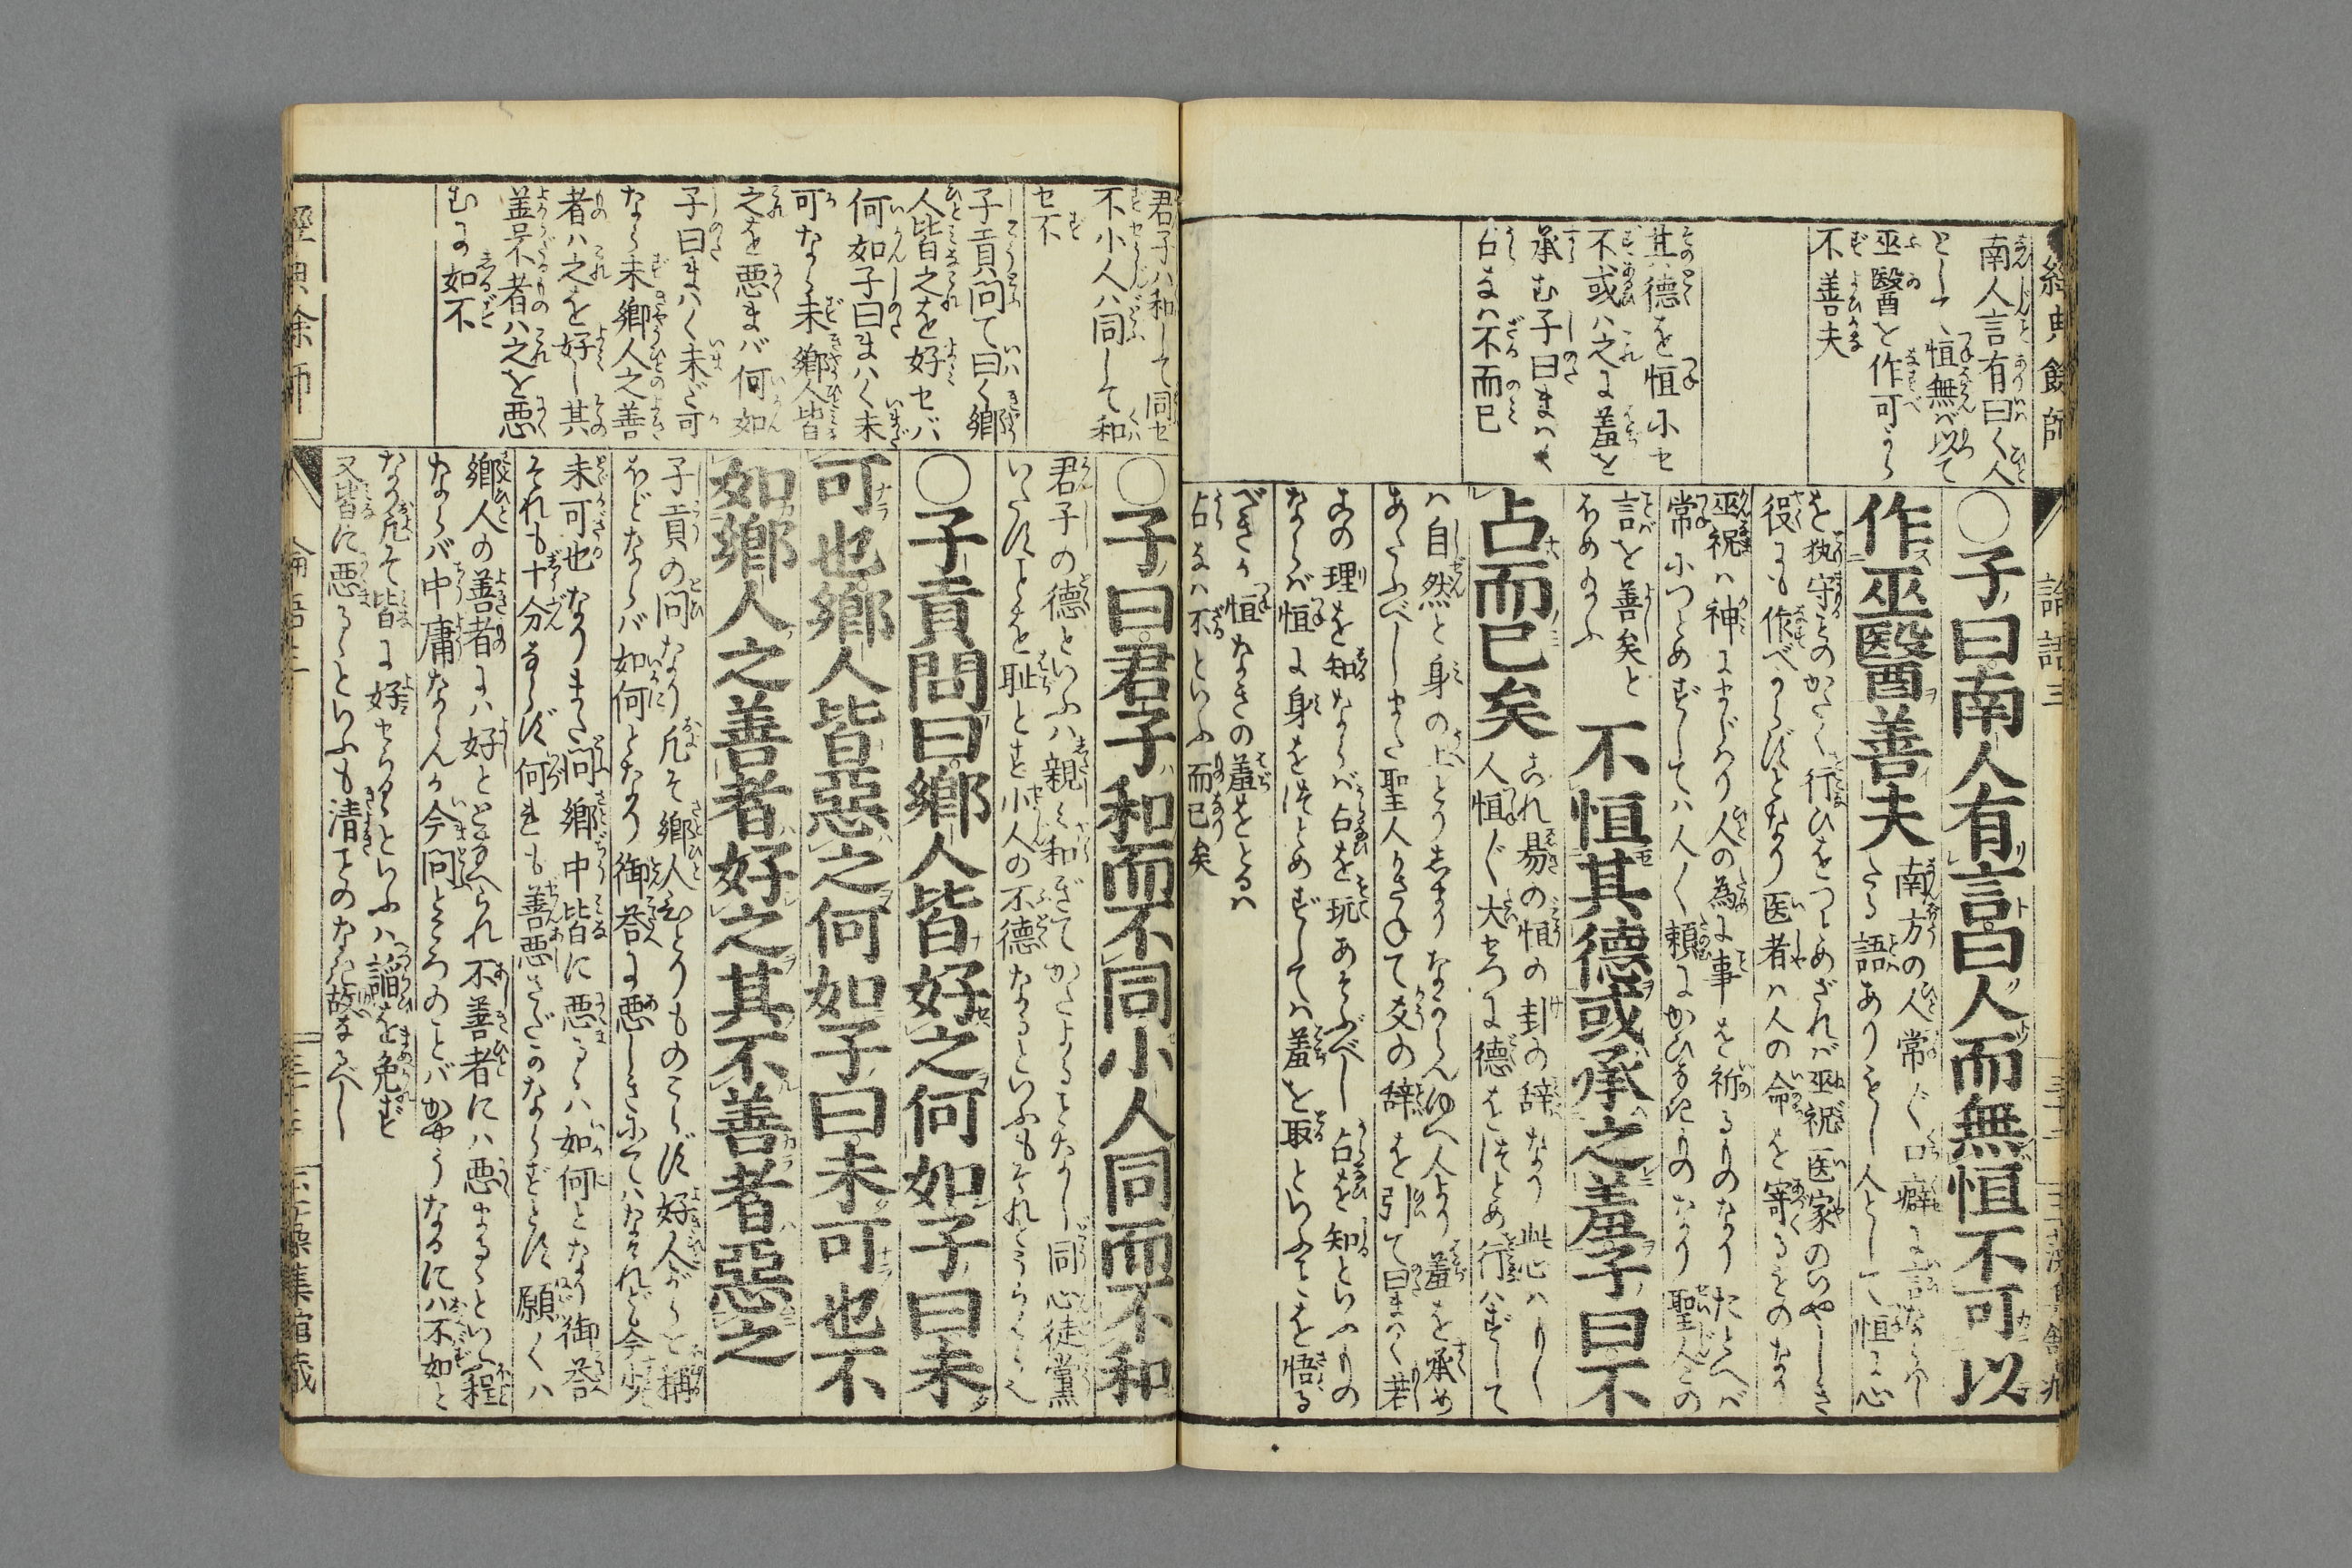 經典餘師
論語三
南人言有曰く人
として恒無バ以て
巫醫を作可から
不善夫
其德を恒にセ
不或ハ之に羞を
承む子曰まハく
占まハ不而已
○子曰南人有言曰人而無恒不可以
作巫醫善夫
南方の人常〴〵口癖に言ならハし
たる語ありをし人として恒に心
を執守ものかたく行ひをつとめざれバ巫祝医家のいやしき
役にも作べからずとなり医者ハ人の命を寄るものなり
巫祝ハ神にまじハり人の為に事を祈るものなりたとへバ
常につとめずしてハ人〳〵頼にかひなきものなり聖人この
言を善矣と
ほめ給ふ
不恒其德或承之羞子曰不
占而已矣
これ易の恒の卦の辞なり此心ハもし
人恒〴〵大せつに德をつとめ行ハずして
ハ自然と身の上とりしまりなからんゆへ人より羞を承め
あたふべしまた聖人かさねて爻の辞を引て曰まハく若
この理を知ならバ占を玩あそぶべし占を知といふもの
ならバ恒に身をつとめずしてハ羞を取といふことを悟る
べきか恒なきの羞をとるハ
占まハ不といふ而已矣
君子ハ和して同セ
不小人ハ同して和
セ不
子貢問て曰く鄉
人皆之を好セバ
何如子曰まハく未
可なら未鄉人皆
之を悪まバ何如
子曰まハく未だ可
なら未鄉人之善
者ハ之を好し其
善不者ハ之を悪
むに如不
○子曰君子和而不同小人同而不和
君子の德といふハ親く和ぎてかたよることなし同心徒黨
いたすことを恥とす小人の不德なるといふもそれとうらくへ
○子貢問曰鄉人皆好之何如子曰未
可也鄉人皆惡之何如子曰未可也不
如鄉人之善者好之其不善者惡之
子貢の問なり凡そ鄉人ひとりものこらず好人がらと稱
ほどならバ如何となり御荅に悪しきにてハなけれども今少
未可也なりまた問鄉中皆に悪るゝハ如何となり御荅
それも十分ならず何れも善悪さだかならずとす願くハ
鄉人の善者にハ好とととなへられ不善者にハ悪まるゝといふ程
ならバ中庸ならんか今問ところのことバかやうなるにハ不如と
なり凡そ皆に好セらるゝといふハ謟を免ず
又皆に悪るゝといふも清ものなき故なるべし